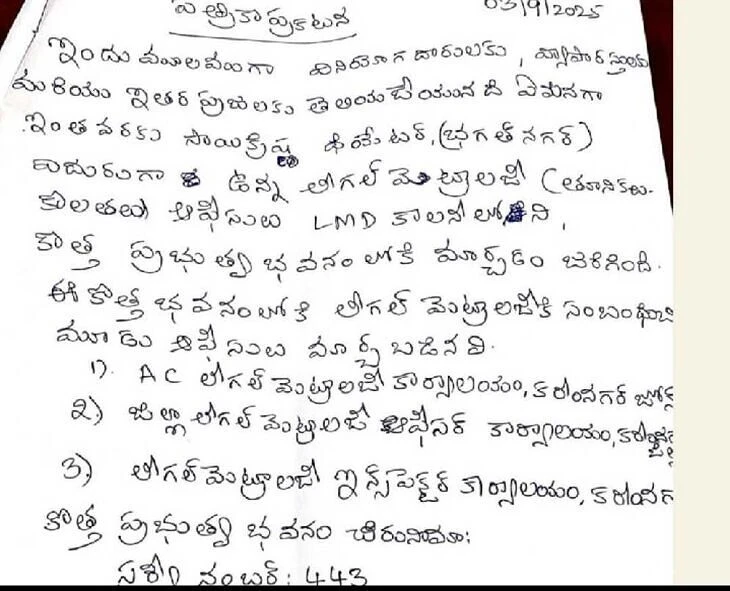 పత్రికా ప్రకటన
03/9/2025
ఇందు మూలముగా వినియోగదారులకు, వ్యాపారస్తులకు
మరియు ఇతర ప్రజలకు తెలియచేయునది ఏమనగా
ఇంత వరకు సాయికృష్ణ థియేటర్, (భగత్ నగర్)
ఎదురుగా ఉన్న లీగల్ మెట్రాలజీ (తూనికలు-
కొలతలు) ఆఫీసులు LMD కాలనీ లోని,
కొత్త ప్రభుత్వ భవనం లోకి మార్చడం జరిగింది.
ఈ కొత్త భవనంలోకి లీగల్ మెట్రాలజీకి సంబంధించి
మూడు ఆఫీసులు మార్చబడినవి.
1). AC లీగల్ మెట్రాలజీ కార్యాలయం, కరీంనగర్ జోన్
2) జిల్లా లీగల్ మెట్రాలజీ ఆఫీసర్ కార్యాలయం,
3) లీగల్ మెట్రాలజీ ఇన్స్పెక్టర్ కార్యాలయం,
కొత్త ప్రభుత్వ భవనం చిరునామా:
సర్వే నంబర్: 443